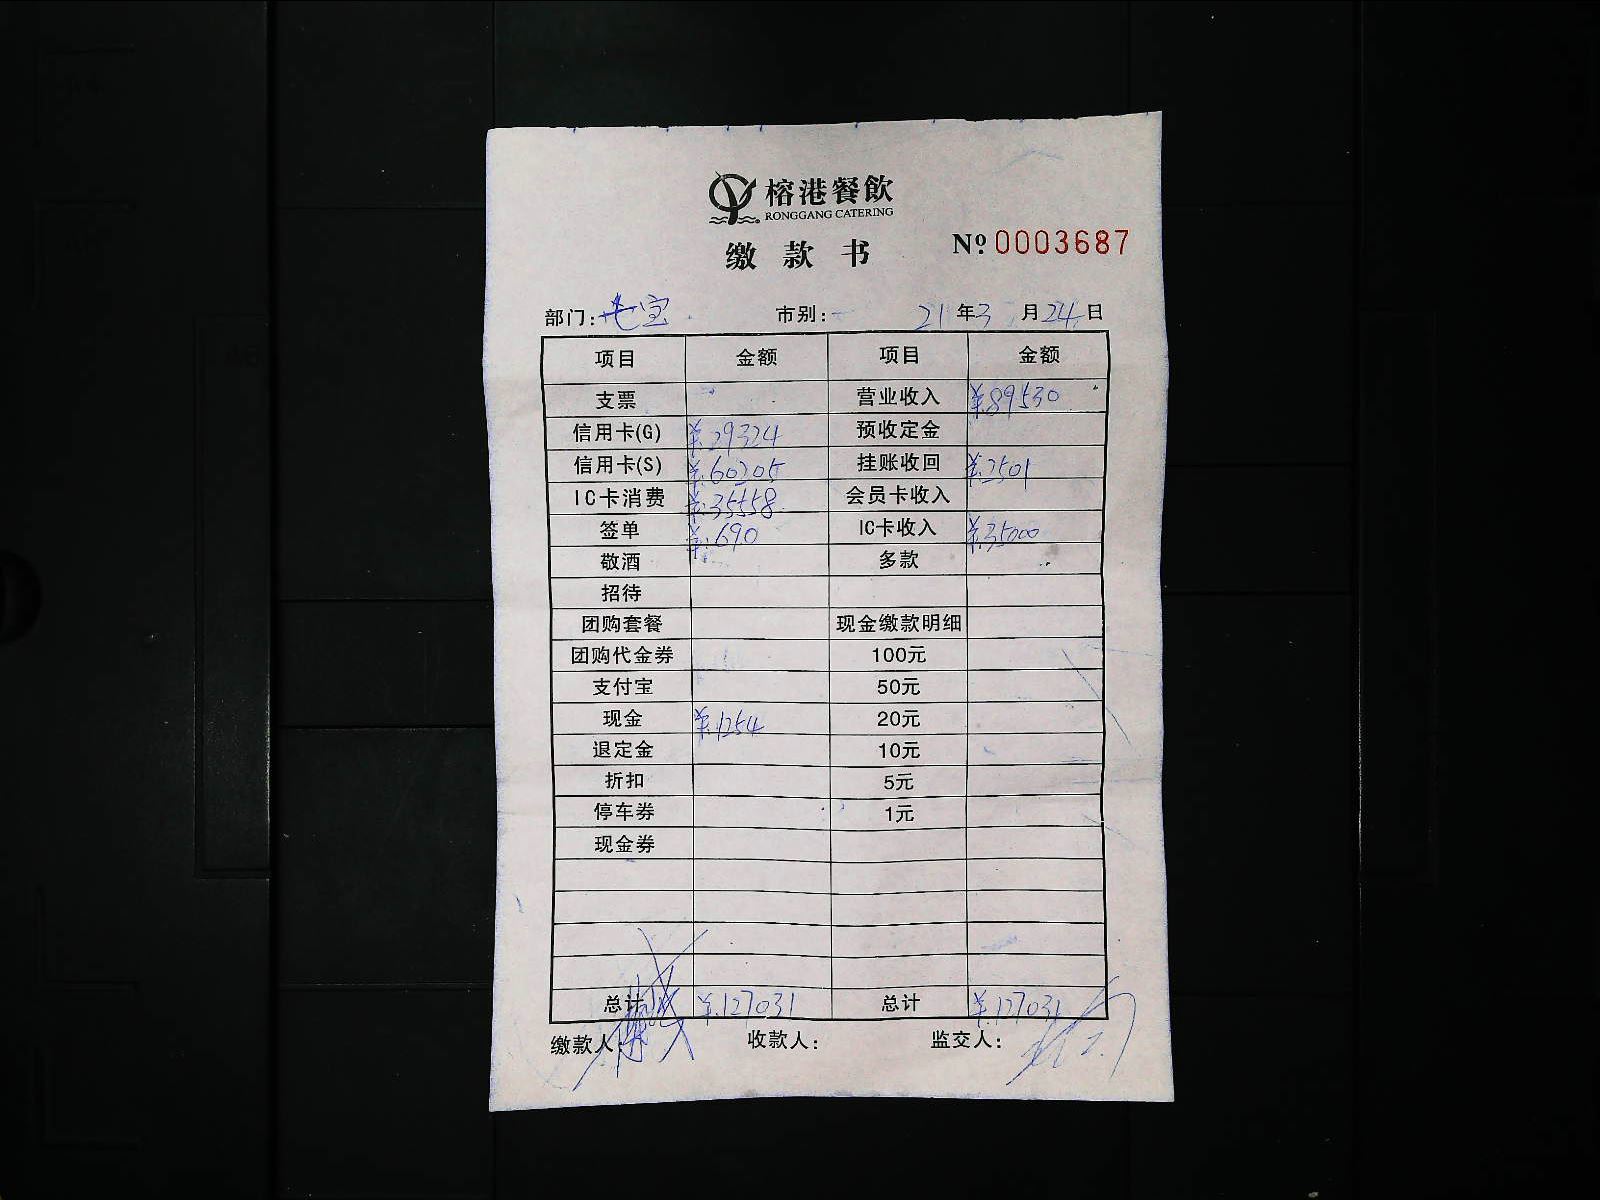 榕港餐飲
RONGGANG CATERING
缴款书
Nº 0003687
部门: 市别: 21年3月24日
项目 金额 项目 金额
支票 营业收入 ¥.89530
信用卡(G) ¥.29324 预收定金
信用卡(S) ¥.60205 挂账收回 ¥.2501
IC卡消费 ¥.35558 会员卡收入
签单 ¥.690 IC卡收入 ¥.35000
敬酒 多款
招待
团购套餐 现金缴款明细
团购代金券 100元
支付宝 50元
现金 ¥.1254 20元
退定金 10元
折扣 5元
停车券 1元
现金券
总计 ¥.127031 总计 ¥.127031
缴款人: 收款人: 监交人: